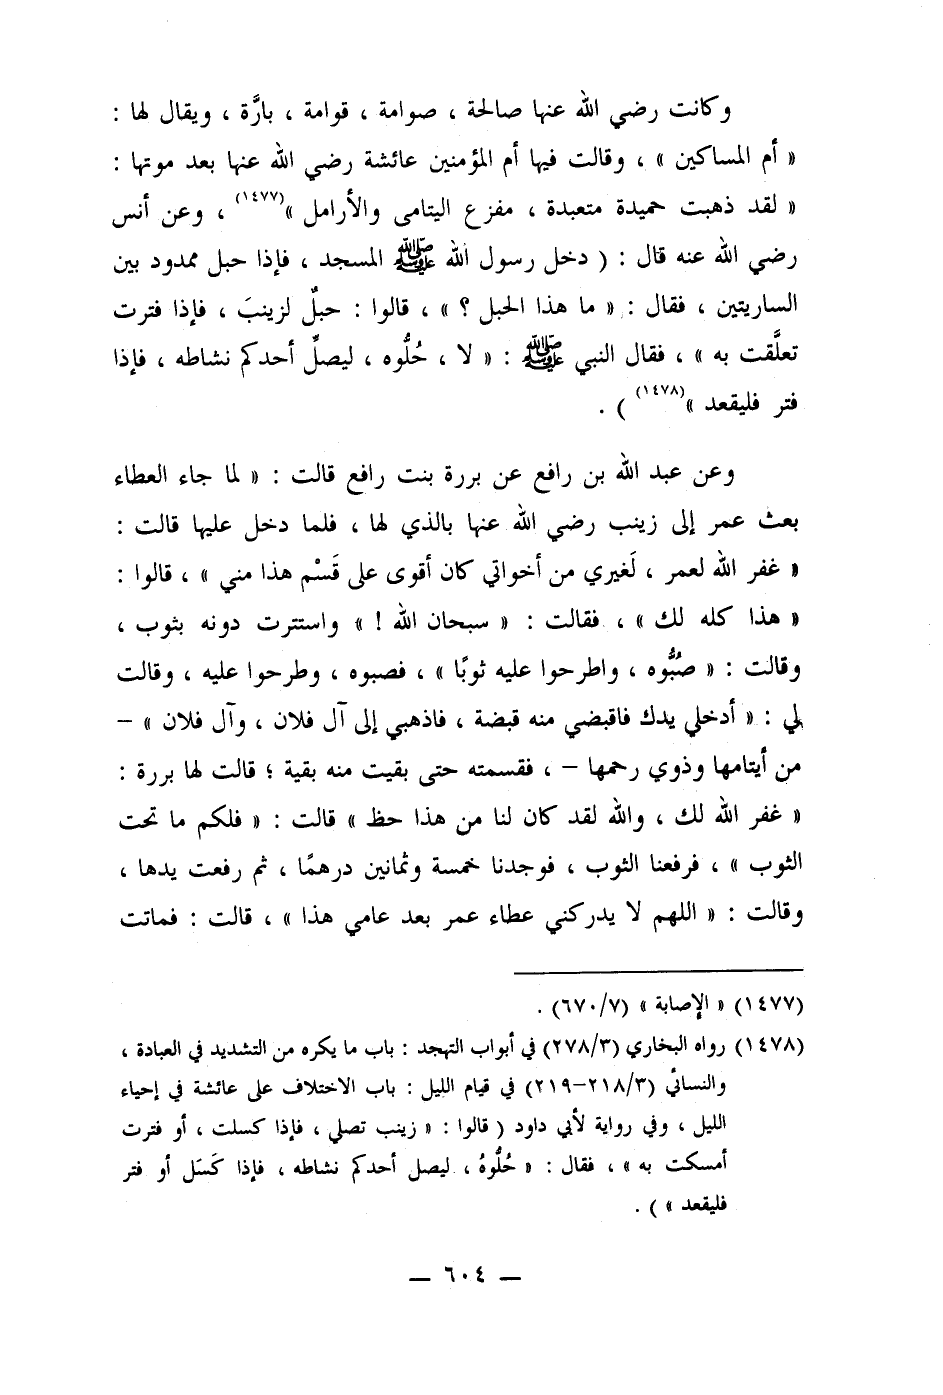 وكانت رضي الله عنها صالحة ، صوامة ، قوامة ، بارَّة ، ويقال لها :
« أم المساكين » ، وقالت فيها أم المؤمنين عائشة رضي الله عنها بعد موتها :
« لقد ذهبت حميدة متعبدة ، مفزع اليتامى والأرامل »(١٤٧٧) ، وعن أنس
رضي الله عنه قال : ( دخل رسول الله ﷺ المسجد ، فإذا حبل ممدود بين
الساريتين ، فقال : « ما هذا الحبل ؟ » ، قالوا : حبلٌ لزينبَ ، فإذا فترت
تعلَّقت به » ، فقال النبي ﷺ : « لا ، حُلُّوه ، ليصلِّ أحدكم نشاطه ، فإذا
فتر فليقعد »(١٤٧٨) ) .
وعن عبد الله بن رافع عن بررة بنت رافع قالت : « لما جاء العطاء
بعث عمر إلى زينب رضي الله عنها بالذي لها ، فلما دخل عليها قالت :
« غفر الله لعمر ، لَغيري من أخواتي كان أقوى على قَسْم هذا مني » ، قالوا :
« هذا كله لك » ، فقالت : « سبحان الله ! » واستترت دونه بثوب ،
وقالت : « صُبُّوه ، واطرحوا عليه ثوبًا » ، فصبوه ، وطرحوا عليه ، وقالت
لي : « أدخلي يدك فاقبضي منه قبضة ، فاذهبي إلى آل فلان ، وآل فلان » –
من أيتامها وذوي رحمها – ، فقسمته حتى بقيت منه بقية ؛ قالت لها بررة :
« غفر الله لك ، والله لقد كان لنا من هذا حظ » قالت : « فلكم ما تحت
الثوب » ، فرفعنا الثوب ، فوجدنا خمسة وثمانين درهمًا ، ثم رفعت يدها ،
وقالت : « اللهم لا يدركني عطاء عمر بعد عامي هذا » ، قالت : فماتت
(١٤٧٧) « الإصابة » (٦٧٠/٧) .
(١٤٧٨) رواه البخاري (٢٧٨/٣) في أبواب التهجد : باب ما يكره من التشديد في العبادة ،
والنسائي (٢١٨/٣–٢١٩) في قيام الليل : باب الاختلاف على عائشة في إحياء
الليل ، وفي رواية لأبي داود ( قالوا : « زينب تصلي ، فإذا كسلت ، أو فترت
أمسكت به » ، فقال : « حُلُّوهُ ، ليصل أحدكم نشاطه ، فإذا كَسَل أو فتر
فليقعد » ) .
— ٦٠٤ —